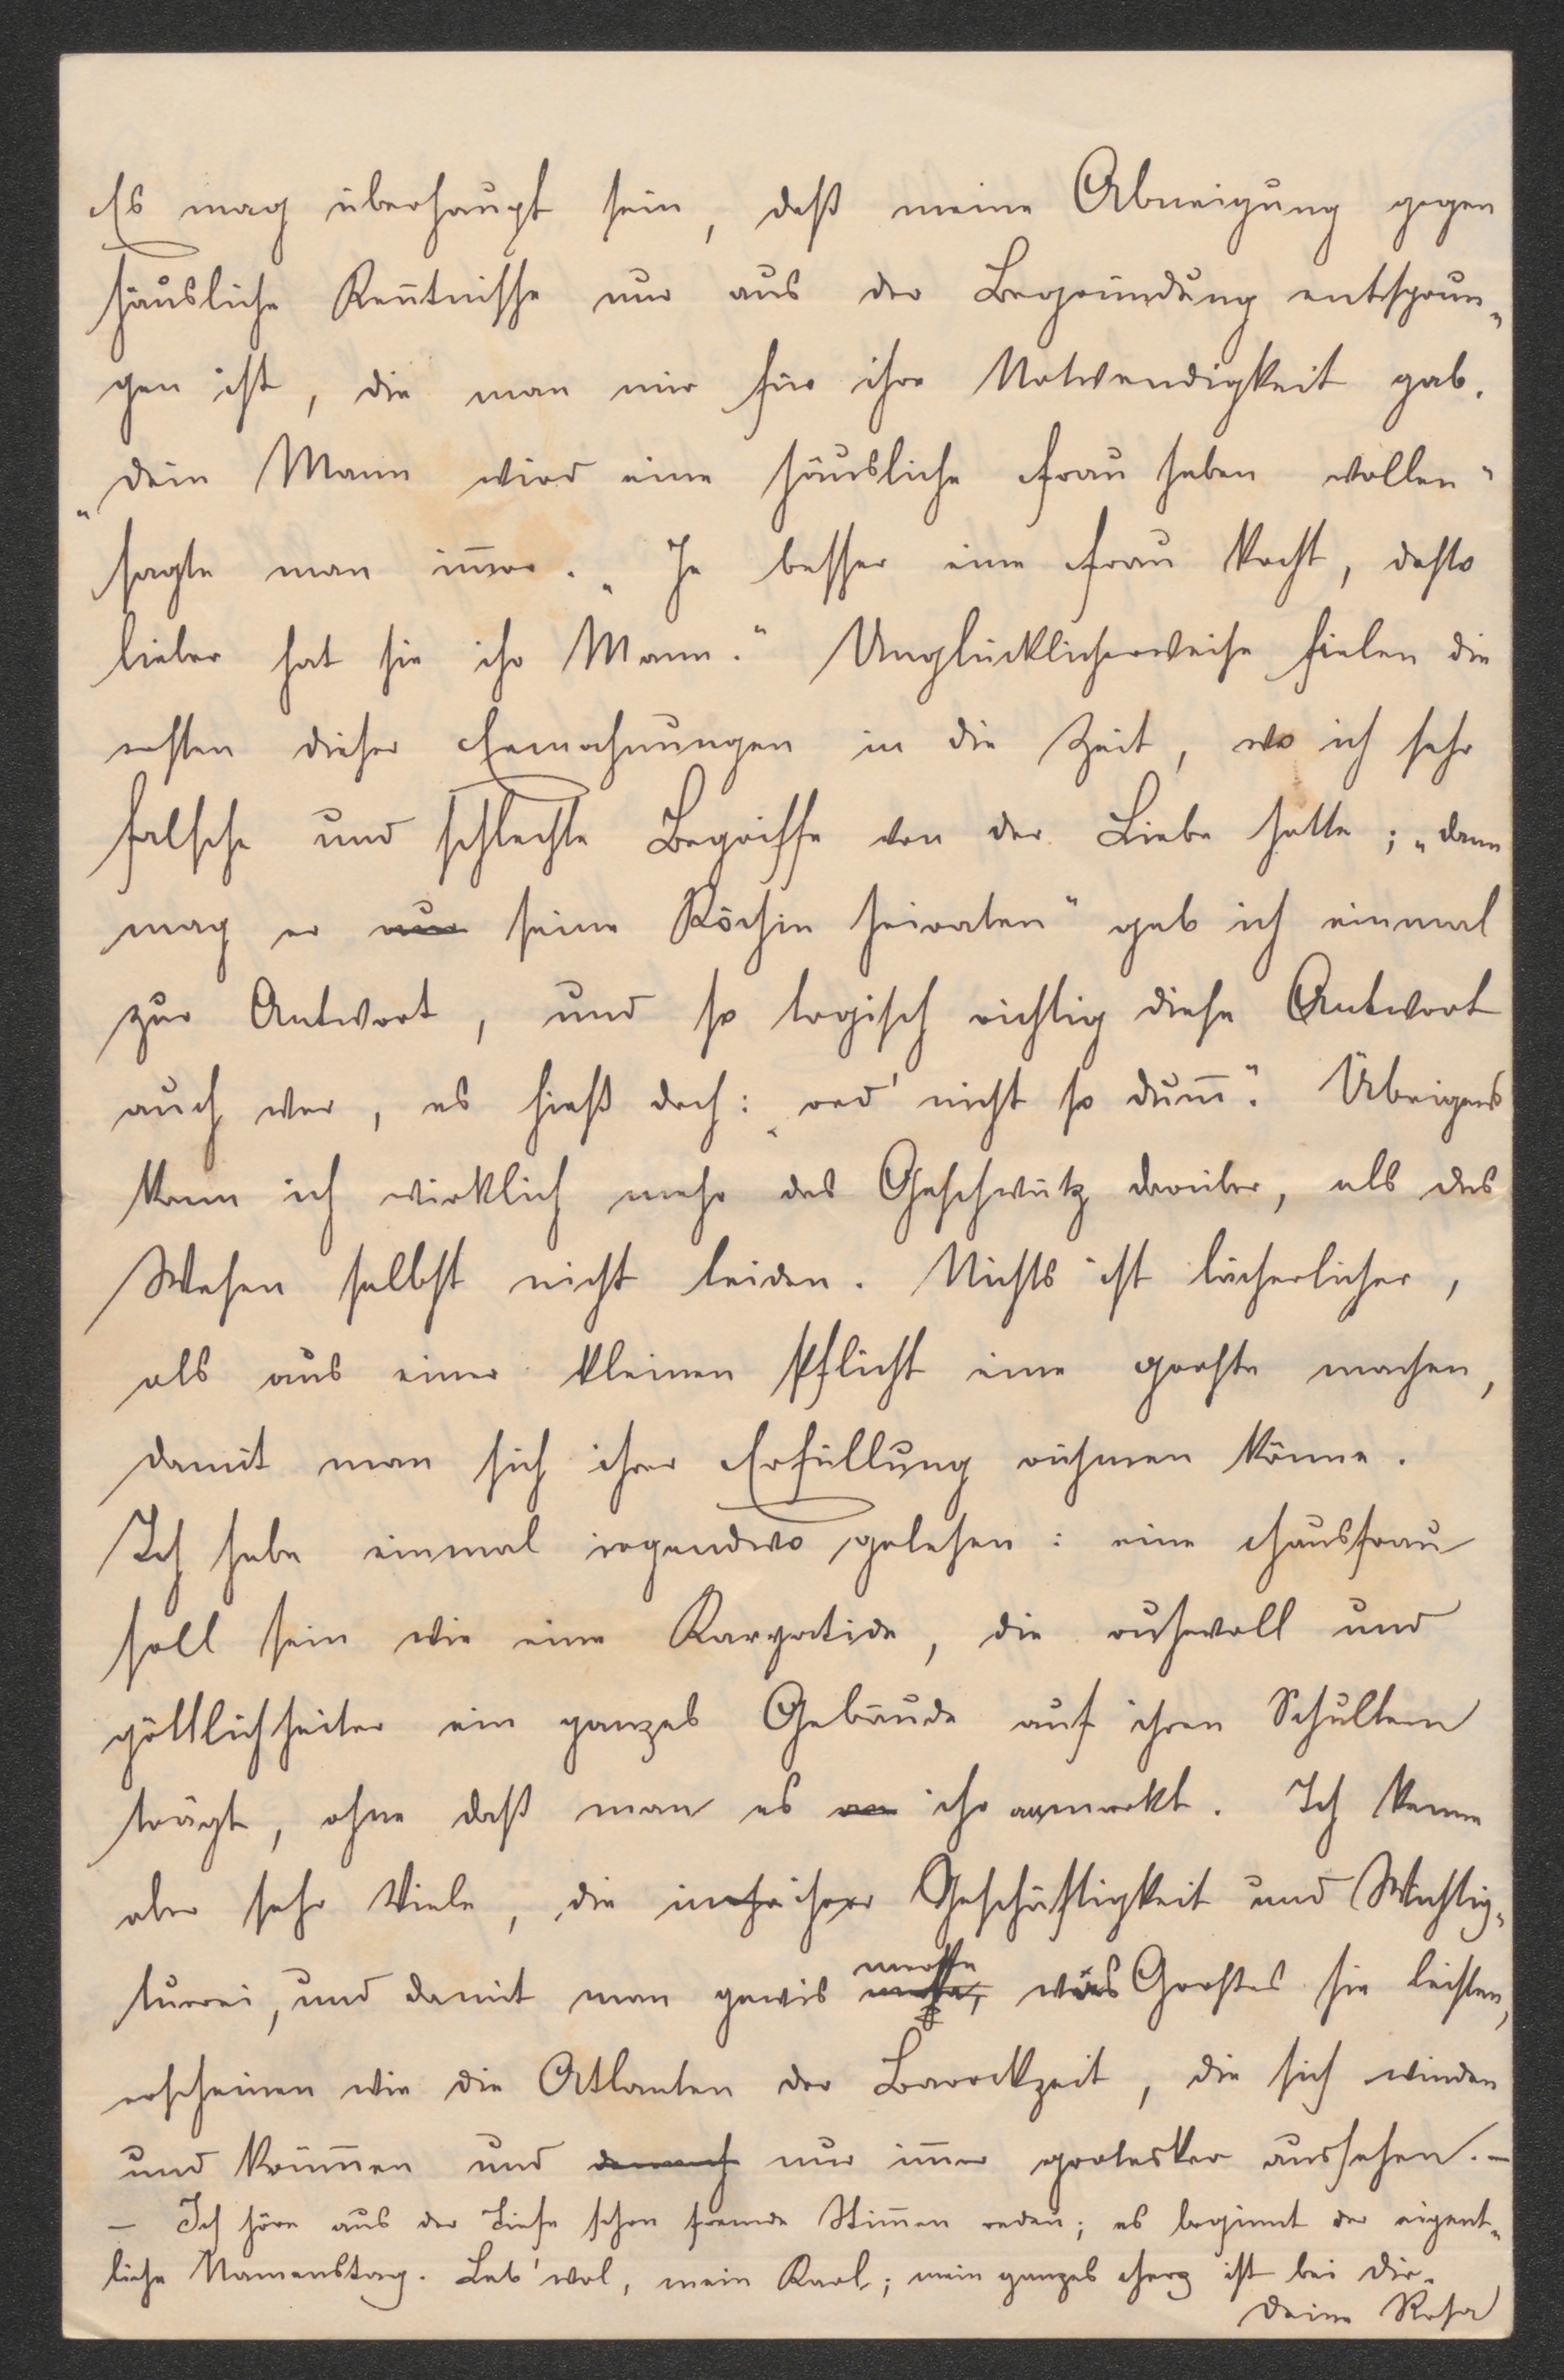 Es mag überhaupt sein, daß meine Abneigung gegen
häusliche Kenntnisse nur aus der Begründung entsprun-
gen ist, die man mir für ihre Notwendigkeit gab.
„Dein Mann wird eine häusliche Frau haben wollen“
sagte man immer. „Je besser eine Frau kocht, desto
lieber hat sie ihr Mann.“ Unglücklicherweise fielen die
ersten dieser Ermahnungen in die Zeit, wo ich sehr
falsche und schlechte Begriffe von der Liebe hatte; „dann
mag er nur seine Köchin heiraten“ gab ich einmal
zur Antwort, und so logisch richtig diese Antwort
auch war, es hieß doch: „red' nicht so dumm“. Übrigens
kann ich wirklich mehr das Geschwätz darüber, als das
Wesen selbst nicht leiden. Nichts ist lächerlicher,
als aus einer kleinen Pflicht eine große machen,
damit man sich ihrer Erfüllung rühmen könne.
Ich habe einmal irgendwo gelesen: eine Hausfrau
soll sein wie eine Karyatide, die ruhevoll und
göttlichheiter ein ganzes Gebäude auf ihren Schultern
trägt, ohne daß man es an ihr anmerkt. Ich kenne
aber sehr Viele, die in ihrer Geschäftigkeit und Wichtig-
tuerei, und damit man gewis merke
was Großes sie leisten,
erscheinen wie die Atlanten der Barockzeit, die sich winden
und krümmen und dennoch nur immer grotesker aussehen. –
– Ich höre aus der Tiefe schon fremde Stimmen reden; es beginnt der eigent-
liche Namenstag. Leb' wol, mein Karl; mein ganzes Herz ist bei Dir.
Deine Rosa